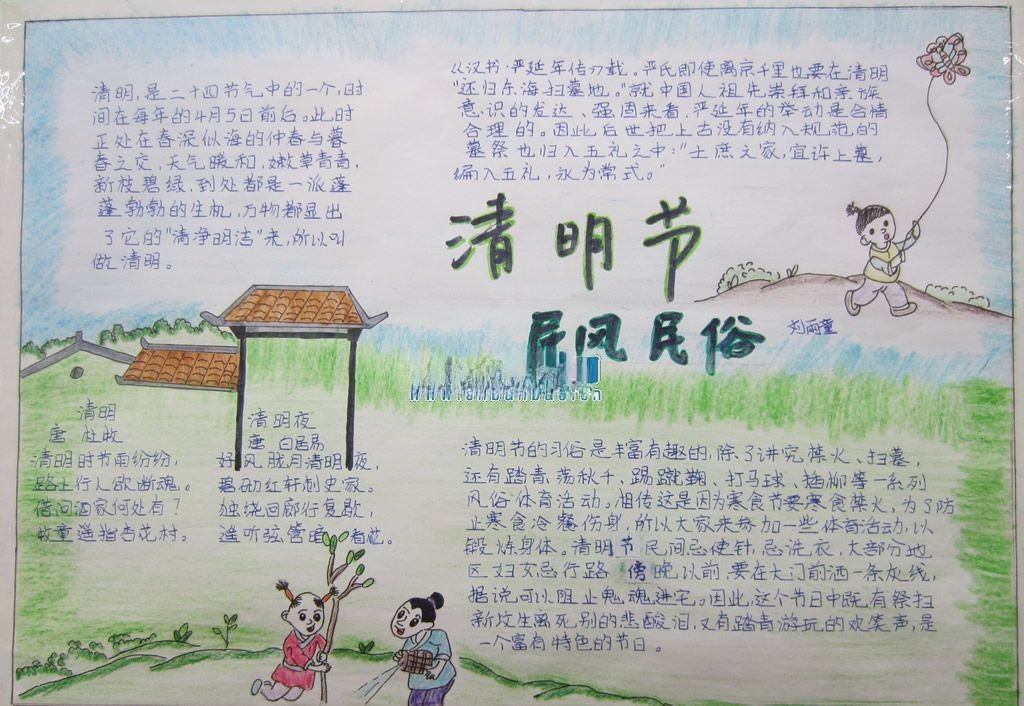 清明,是二十四节气中的一个,时
间在每年的4月5日前后。此时
正处在春深似海的仲春与暮
春之交,天气暖和,嫩草青青,
新枝碧绿,到处都是一派蓬
蓬勃勃的生机,万物都显出
了它的"清净明洁"来,所以叫
做清明。
从汉书·严延年传刀载。严氏即使离京千里也要在清明
"还归东海扫墓地。"就中国人祖先崇拜和亲族
意识的发达、强固来看,严延年的举动是合情
合理的。因此后世把上古没有纳入规范的
墓祭也归入五礼之中:"士庶之家,宜许上墓,
编入五礼,永为常式。"
清明节
民俗
刘雨童
清明
唐 杜牧
清明时节雨纷纷,
路上行人欲断魂。
借问酒家何处有?
牧童遥指杏花村。
清明夜
唐 白居易
好风胧月清明夜,
碧砌红轩刺史家。
独绕回廊行复歇,
遥听弦管暗看花。
清明节的习俗是丰富有趣的,除了讲究禁火、扫墓,
还有踏青、荡秋千、踢蹴鞠、打马球、插柳等一系列
风俗体育活动。相传这是因为寒食节要寒食禁火,为了防
止寒食冷餐伤身,所以大家来参加一些体育活动,以
锻炼身体。清明节民间忌使针,忌洗衣,大部分地
区妇女忌行路。傍晚以前,要在大门前洒一条灰线,
据说可以阻止鬼魂进宅。因此,这个节日中既有祭扫
新坟生离死别的悲酸泪,又有踏青游玩的欢笑声,是
一个富有特色的节日。